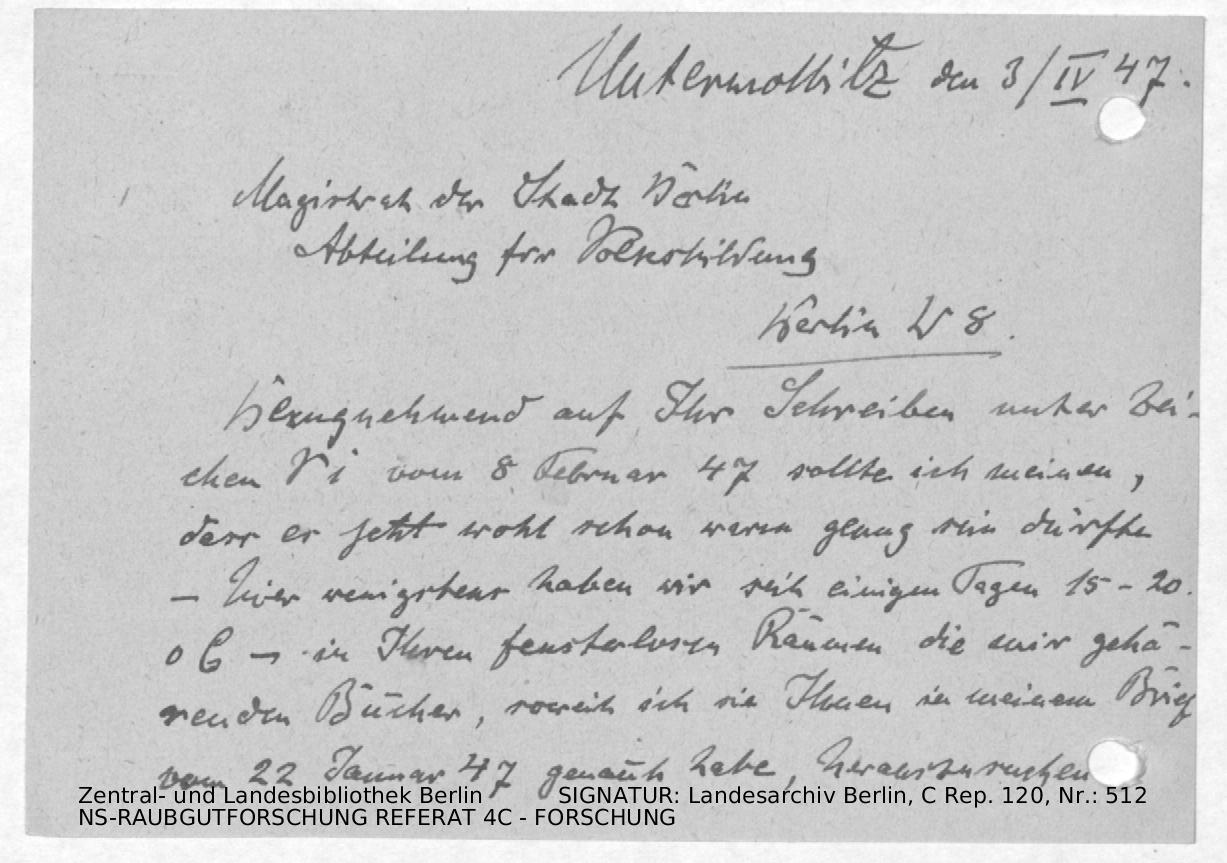 Unterwolbitz den 3/IV 47.
Magistrat der Stadt Berlin
Abteilung für Volksbildung
Berlin W 8.
Bezugnehmend auf Ihr Schreiben unter Zei-
chen V i vom 8 Februar 47 sollte ich meinen,
dass es jetzt wohl schon warm genug sein dürfte
– hier wenigstens haben wir seit einigen Tagen 15 – 20.
o C – in Ihren fensterlosen Räumen die mir gehö-
renden Bücher, soweit ich sie Ihnen in meinem Brief
vom 22 Januar 47 genannt habe, herauszusuchen
Zentral- und Landesbibliothek Berlin SIGNATUR: Landesarchiv Berlin, C Rep. 120, Nr.: 512
NS-RAUBGUTFORSCHUNG REFERAT 4C - FORSCHUNG